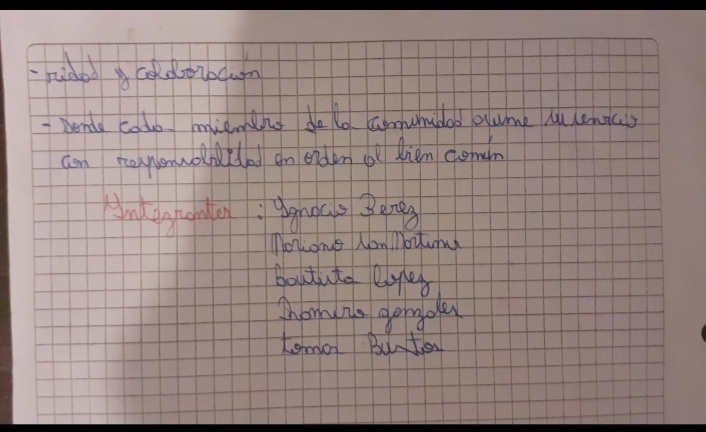 -ridad y colaboración
- Donde cada miembro de la comunidad asume su servicio
con responsabilidad en orden al bien común
Integrantes : Ygnacio Perez
Mariano San Martin
Bautista Lopez
Thomas Bustos